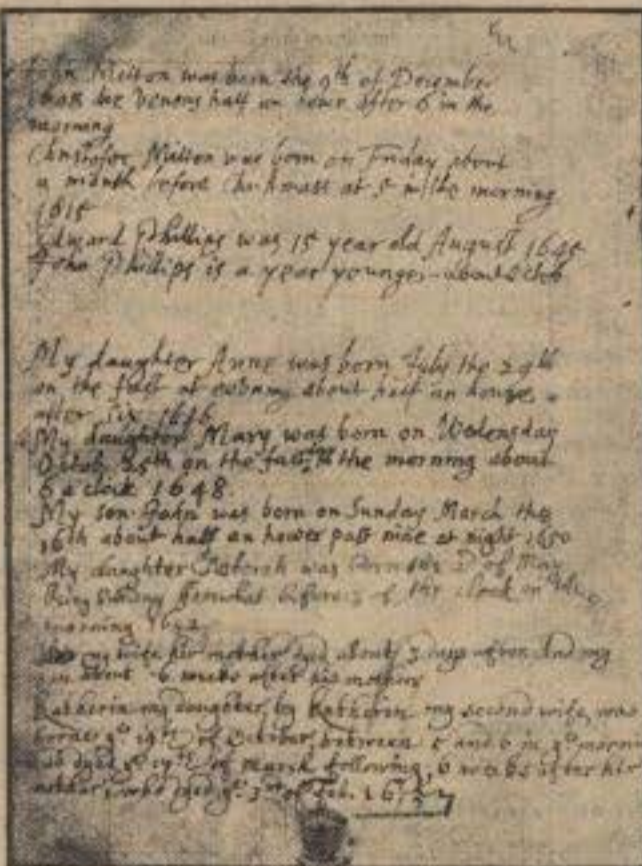 John Milton was born the 9th of December
die Veneris half an howr after 6 in the
morning
Christofer Milton was born on Friday about
a month before Christmass at 5 in the morning
1615
Edward Phillips was 15 year old August 1645
John Phillips is a year younger about Octob
My daughter Anne was born July the 29th
on the fast at evening about half an houre
after six 1646
My daughter Mary was born on Wedensday
Octob. 25th on the fast in the morning about
6 a clock 1648.
My son John was born on Sunday March the
16th about half an hower past nine at night 1650
My daughter Deborah was born the 2d of May
being Sunday somwhat before 3 of the clock in the
morning 1652
my wife hir mother dyed about 3 days after. And my
son about 6 weeks after his mother
Katherin my daughter, by Katherin my second wife, was
borne ye 19th of October, between 5 and 6 in ye morning
and dyed ye 17th of March following, 6 weeks after hir
mother, who dyed ye 3rd of Feb. 1657